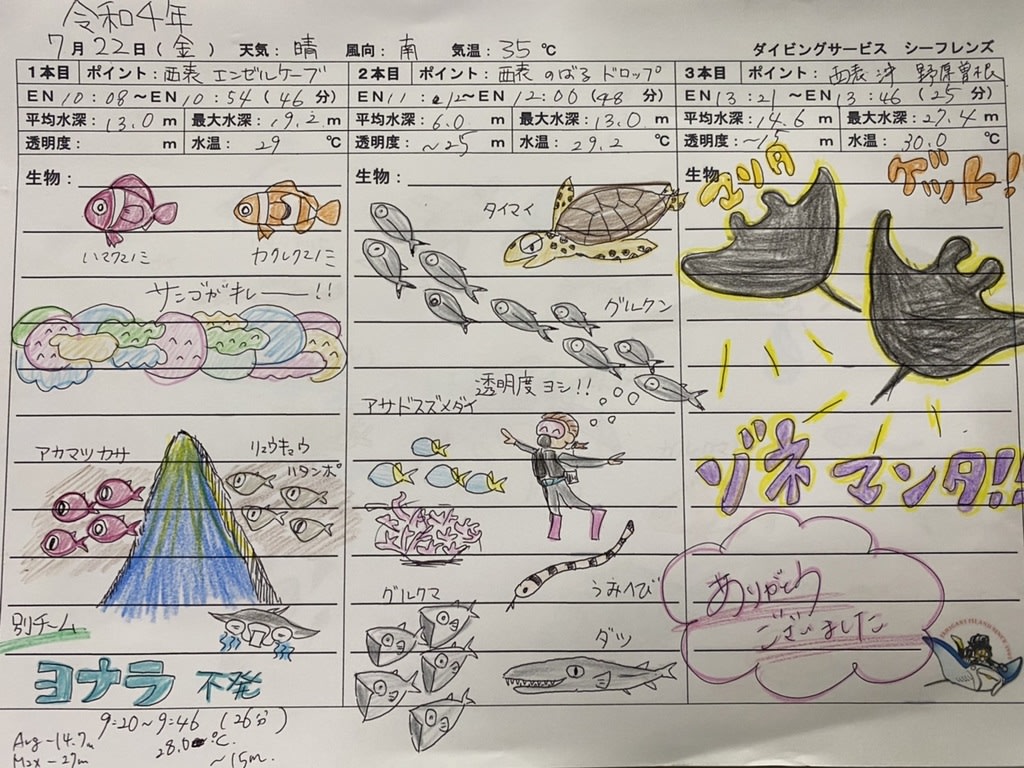 令和4年
7月22日(金) 天気: 晴 風向: 南 気温: 35℃ ダイビングサービス シーフレンズ
1本目 ポイント: 西表 エンゼルケーブ
EN 10:08～EN 10:54(46分)
平均水深: 13.0m 最大水深: 19.2m
透明度: m 水温: 29℃
生物:
ハマクマノミ カクレクマノミ
サンゴがキレー――!!
アカマツカサ リュウキュウ
ハタンポ
別チーム
ヨナラ 不発
9:20～9:46 (26分)
Avg-14.7m 28.0℃.
Max-27m ～15m.
2本目 ポイント: 西表 のばるドロップ
EN 11:12～EN 12:00(48分)
平均水深: 6.0m 最大水深: 13.0m
透明度: ～25m 水温: 29.2℃
生物:
タイマイ
グルクン
透明度ヨシ!!
アサドスズメダイ
うみへび
グルクマ
ダツ
3本目 ポイント: 西表沖 野原曽根
EN 13:21～EN 13:46(25分)
平均水深: 14.6m 最大水深: 27.4m
透明度: ～15m 水温: 30.0℃
生物
マンタ ゲット!
ゾネマンタ!!
ありがとう
ございました